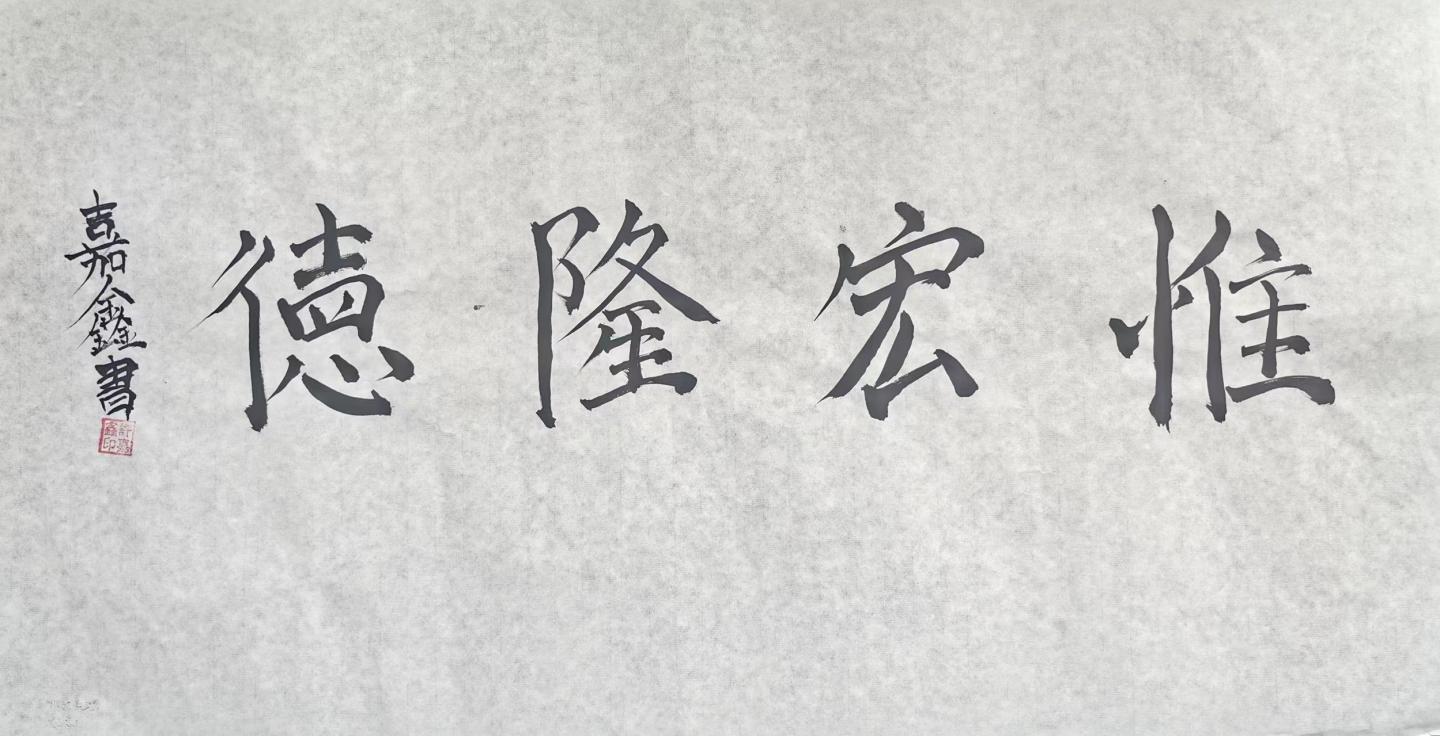 惟宏隆德
嘉鑫書
許嘉鑫印